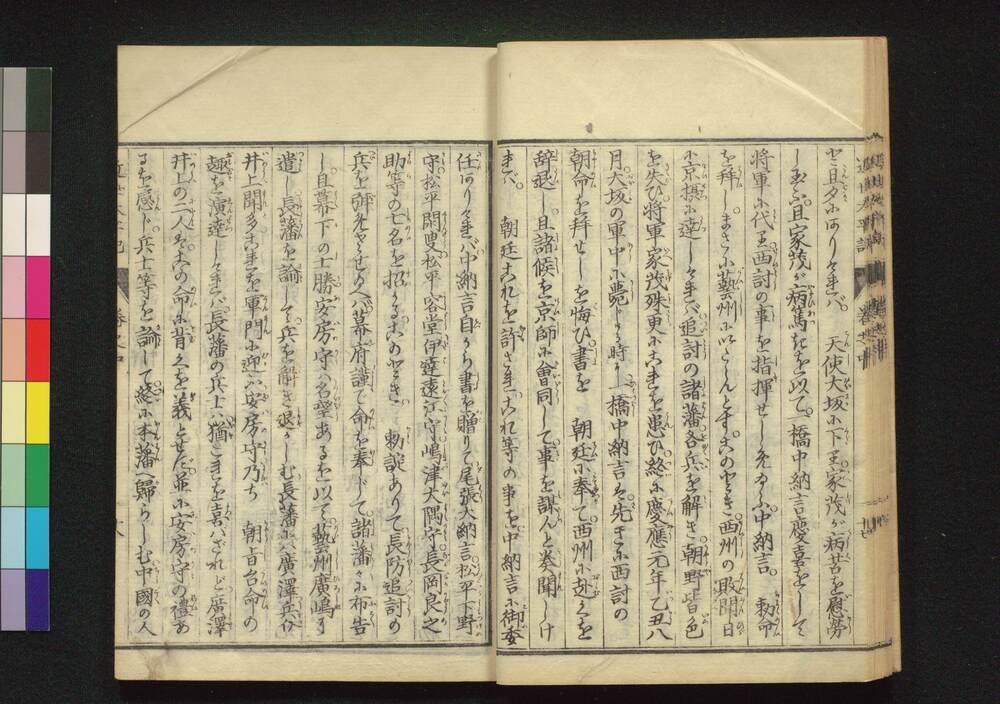 と旦夕にありければ。 天使大坂に下り家茂が病苦を慰労
し玉ふ。且家茂が病篤きを以て。橋中納言慶喜をして
将軍に代り西討の事を指揮せしめ玉ふ。中納言。 勅命
を拝し。まさに藝州にいでんとす。このとき。西州の敗聞日
に京摂に達しければ追討の諸藩各兵を解き朝野皆色
を失ひ将軍家茂殊更にこれを患ひ。終に慶應元年乙丑八
月。大坂の軍中に薨じる時に一橋中納言は先きに西討の
朝命を拝せしを悔ひ。書を 朝廷に奉て西州に赴くを
辞退し。且諸候を京師に會同して事を謀んと奏聞しけ
れば。 朝廷これを許されこれ等の事を中納言に御委
任ありければ中納言自から書を贈りて尾張大納言松平下野
守松平閑叟松平容堂伊達遠江守嶋津大隅守長岡良之
助等の七名を招かるこのとき 勅諚ありて長防追討の
兵を弭めさせらる幕府謹で命を奉じて。諸藩に布告
し且幕下の士勝安房守は名望あるを以て藝州廣嶋に
遣し。長藩を諭して。兵を解き退かしむ長藩には廣澤兵助
井上聞多これを軍門に迎ふ安房守乃ち 朝旨台命の
趣を演達しければ長藩の兵士は猶これを喜ばざれど廣澤
井上の二人はこの命に肯くを義とせだ並に安房守の禮あ
るを感じ兵士等を諭して終に本藩歸らしむ中國の人